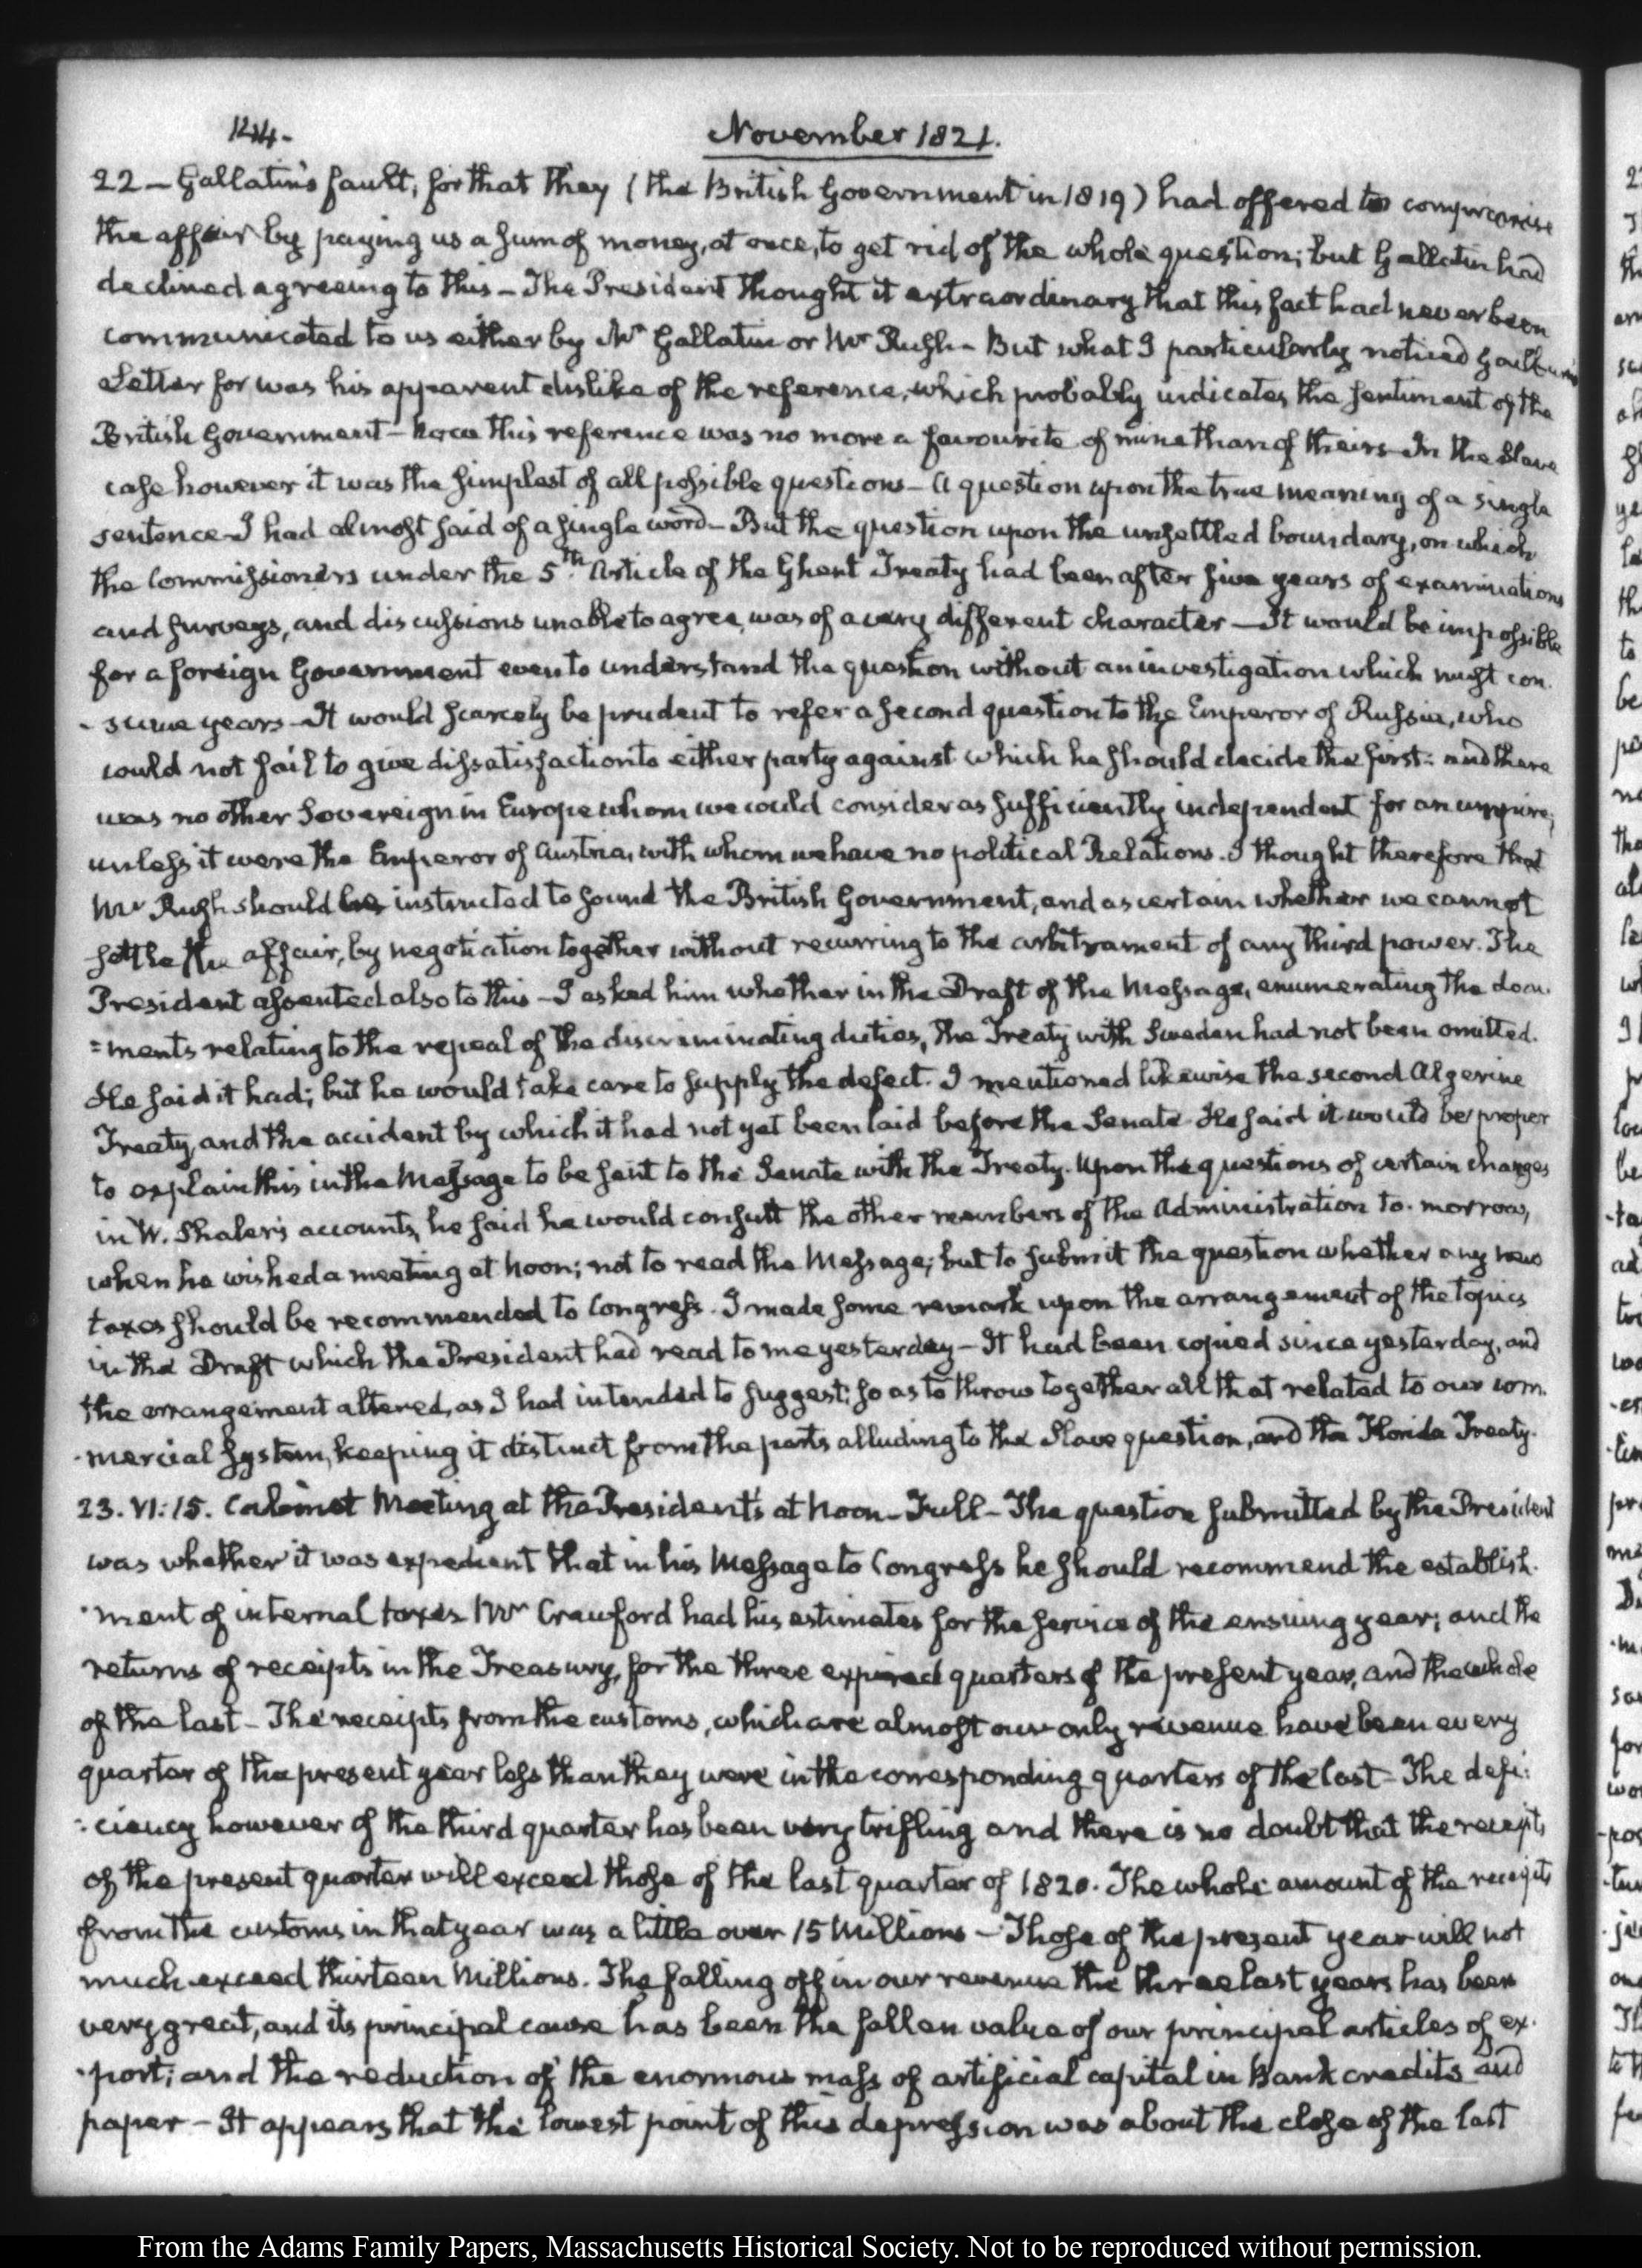 144.
November 1821.
22 — Gallatin's fault, for that they (the British Government in 1819) had offered to compromise
the affair by paying us a sum of money, at once, to get rid of the whole question; but Gallatin had
declined agreeing to this — The President thought it extraordinary that this fact had never been
communicated to us either by Mr Gallatin or Mr Rush — But what I particularly noticed Gallatin's
Letter for was his apparent dislike of the reference, which probably indicates the sentiment of the
British Government — Now this reference was no more a favourite of mine than of theirs — In the Slave
case however it was the simplest of all possible questions — A question upon the true meaning of a single
sentence — I had almost said of a single word — But the question upon the unsettled boundary, on which
the Commissioners under the 5th Article of the Ghent Treaty had been after five years of examinations
and surveys, and discussions unable to agree, was of a very different character — It would be impossible
for a foreign Government even to understand the question without an investigation which must con-
-sume years — It would scarcely be prudent to refer a second question to the Emperor of Russia, who
could not fail to give dissatisfaction to either party against which he should decide the first: and there
was no other Sovereign in Europe whom we could consider as sufficiently independent for an umpire;
unless it were the Emperor of Austria, with whom we have no political Relations. I thought therefore that
Mr Rush should be instructed to sound the British Government, and ascertain whether we cannot
settle the affair, by negotiation together without recurring to the arbitrament of any third power. The
President assented also to this — I asked him whether in the Draft of the Message, enumerating the docu-
=ments relating to the repeal of the discriminating duties, the Treaty with Sweden had not been omitted.
He said it had; but he would take care to supply the defect. I mentioned likewise the second Algerine
Treaty, and the accident by which it had not yet been laid before the Senate. He said it would be proper
to explain this in the Message to be sent to the Senate with the Treaty. Upon the questions of certain charges
in W. Shaler's accounts, he said he would consult the other members of the Administration to-morrow,
when he wished a meeting at Noon; not to read the Message; but to submit the question whether any new
taxes should be recommended to Congress. I made some remark upon the arrangement of the topics
in the Draft which the President had read to me yesterday — It had been copied since yesterday, and
the arrangement altered, as I had intended to suggest; so as to throw together all that related to our com-
-mercial System, keeping it distinct from the parts alluding to the Slave question, and the Florida Treaty.
23. VI:15. Cabinet Meeting at the President's at Noon — Full — The question submitted by the President
was whether it was expedient that in his Message to Congress he should recommend the establish-
-ment of internal taxes Mr Crawford had his estimates for the service of the ensuing year; and the
returns of receipts in the Treasury, for the three expired quarters of the present year, and the whole
of the last — The receipts from the customs, which are almost our only revenue have been every
quarter of the present year less than they were in the corresponding quarters of the last — The defi:
:ciency however of the third quarter has been very trifling and there is no doubt that the receipts
of the present quarter will exceed those of the last quarter of 1820. The whole amount of the receipts
from the customs in that year was a little over 15 Millions — Those of the present year will not
much exceed thirteen Millions. The falling off in our revenue the three last years has been
very great, and its principal cause has been the fallen value of our principal articles of ex-
-port; and the reduction of the enormous mass of artificial capital in Bank credits and
paper — It appears that the lowest point of this depression was about the close of the last
From the Adams Family Papers, Massachusetts Historical Society. Not to be reproduced without permission.